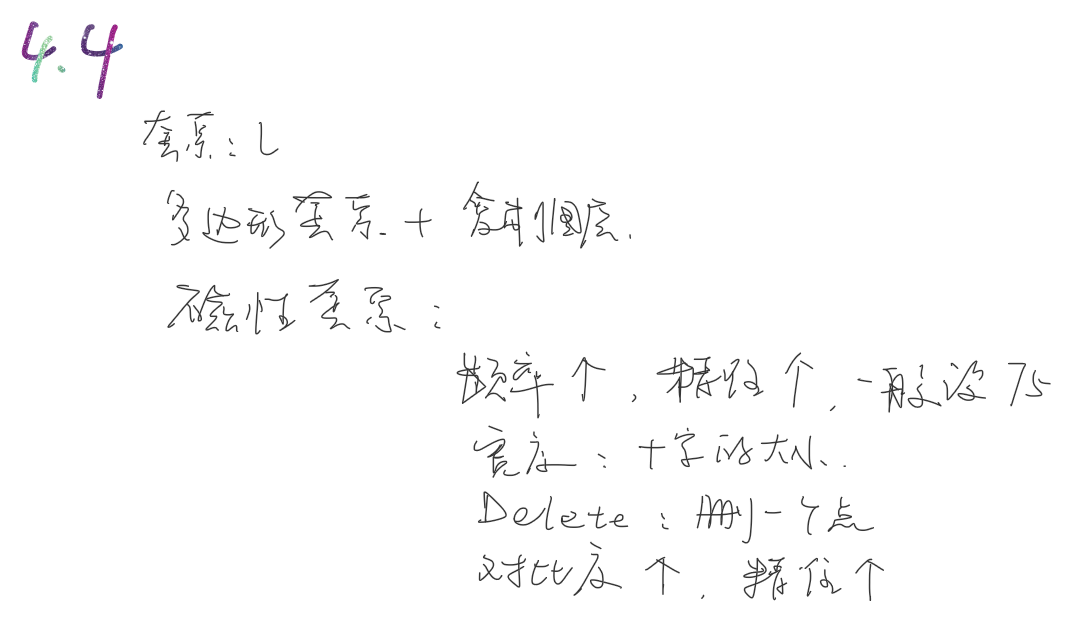 4.4
套索：L
多边形套索 + 复制图层.
磁性套索：
频率↑，精径↑，一般设 75
宽度：十字的大小、
Delete：删一个点
对比度↑，精径↑